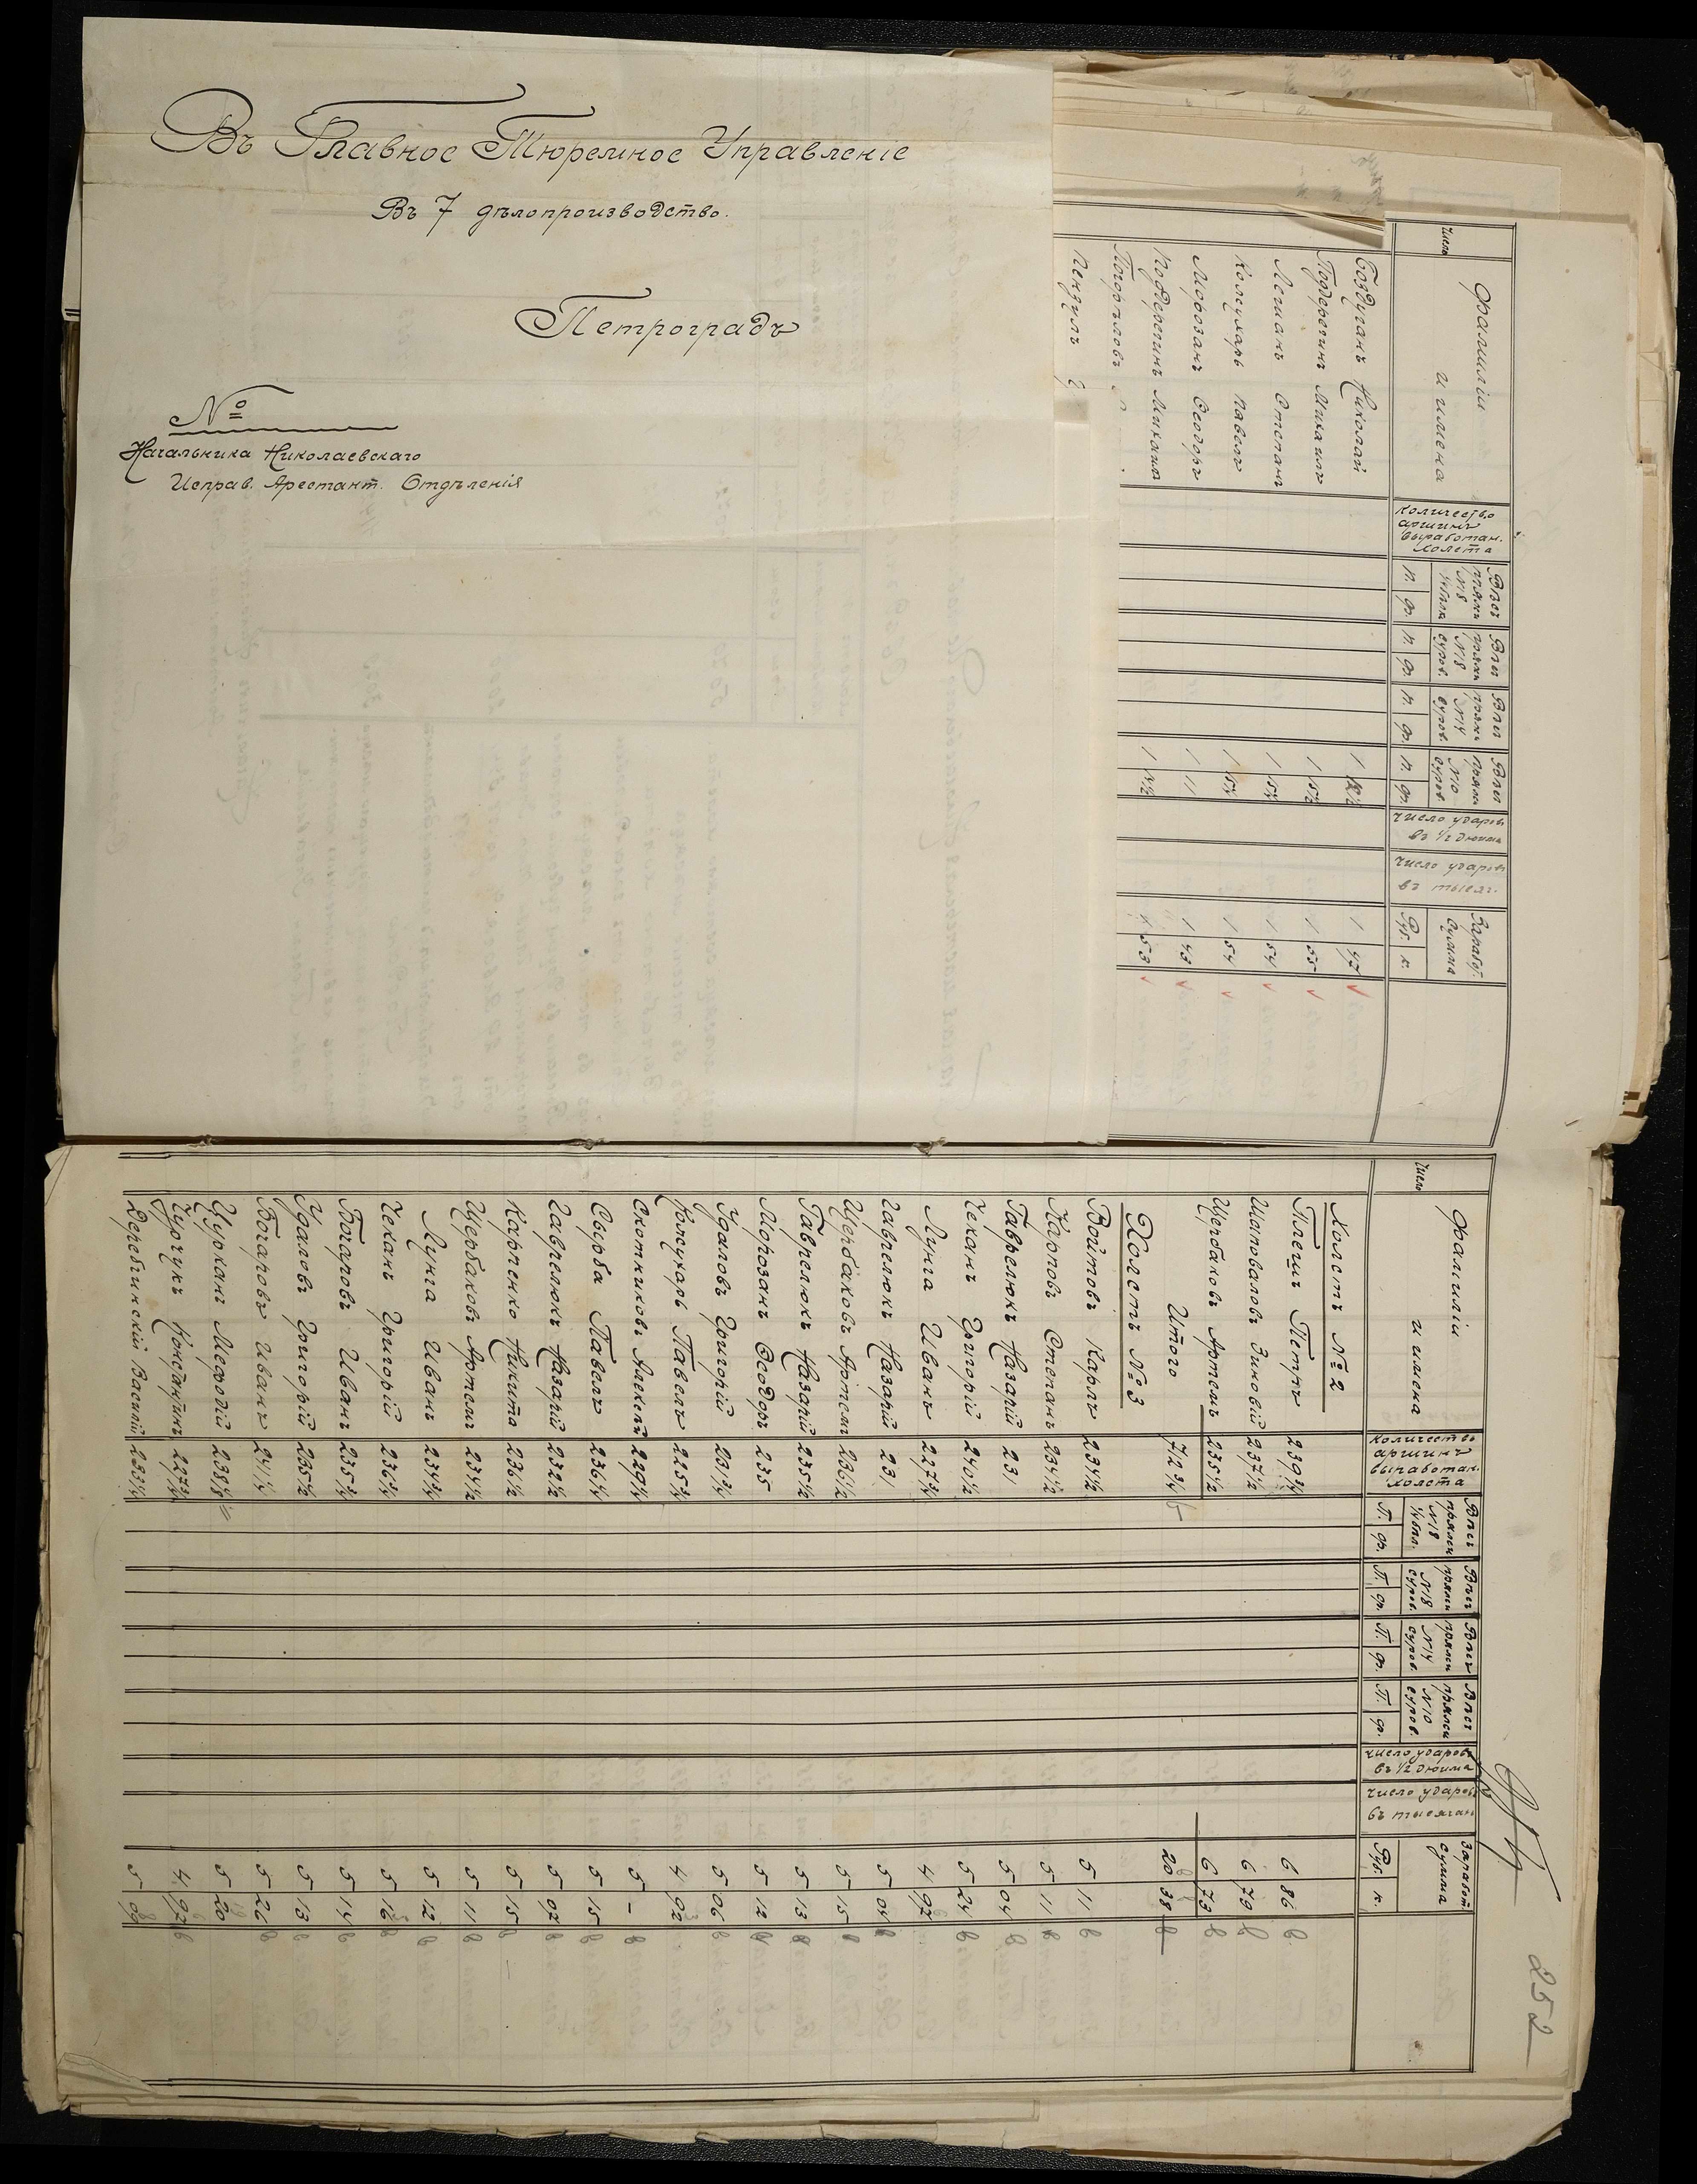 Въ Главное Тюремное Управленіе
Въ 7 дѣлопроизводство.
Петроградъ
№
Начальника Николаевскаго
Исправ. Арестант. Отдѣленія
Число
Фамиліи и имена
Количество аршинъ выработан. холста
Вѣсъ пряжи №18
Вѣсъ пряжи №18 суров.
Вѣсъ пряжи №14 суров.
Вѣсъ пряжи №10 суров.
П. ф. П. ф. П. ф. П. ф.
Число ударовъ въ 1/2 дюйма
Число ударовъ въ тысяч.
Заработ. сумма
Руб. к.
Боздуганъ Николай 1 1 47
Подверегинъ Михаилъ 1 15½ 1 55
Лешанъ Степанъ 1 15½ 1 54
Колсухарь Павелъ 1 15½ 1 54
Морозанъ Ѳеодоръ 1 11 1 43
Подверегинъ Михаилъ 1 14½ 1 53
Погорѣловъ
252
Число
Фамиліи и имена
Количество аршинъ выработан. холста
Вѣсъ пряжи №18
Вѣсъ пряжи №18 суров.
Вѣсъ пряжи №14 суров.
Вѣсъ пряжи №10 суров.
П. ф. П. ф. П. ф. П. ф.
Число ударовъ въ 1/2 дюйма
Число ударовъ въ тысячахъ
Заработ. сумма
Руб. к.
Холстъ №2
Плешъ Петръ 239¾ 6 86
Шаповаловъ Зиновій 237½ 6 79
Щербаковъ Артемъ 235½ 6 73
Итого 712¾ 20 38
Холстъ №3
Войтовъ Карлъ 234½ 5 11
Карповъ Степанъ 234½ 5 11
Гаврелюкъ Назарій 231 5 04
Чеханъ Григорій 240½ 5 24
Лунга Иванъ 227¾ 4 97
Гаврелюкъ Назарій 231 5 04
Щербаковъ Артемъ 236½ 5 15
Гаврелюкъ Назарій 235½ 5 13
Морозанъ Ѳеодоръ 235 5 12
Удаловъ Григорій 231¾ 5 06
Кожухарь Павелъ 225¾ 4 92
Скотниковъ Алексѣй 229¼ 5 -
Сырба Павелъ 236¼ 5 15
Гаврелюкъ Назарій 232½ 5 07
Карпенко Никита 236½ 5 15
Щербаковъ Артемъ 234½ 5 11
Лунга Иванъ 234¾ 5 12
Чеханъ Григорій 236¾ 5 16
Богаровъ Иванъ 235¾ 5 14
Удаловъ Григорій 235½ 5 13
Богаровъ Иванъ 241¼ 5 26
Цурканъ Меѳодій 238⅛ 5 20
Константинъ 227¾ 4 97
Деребчинскій Василій 233½ 5 09